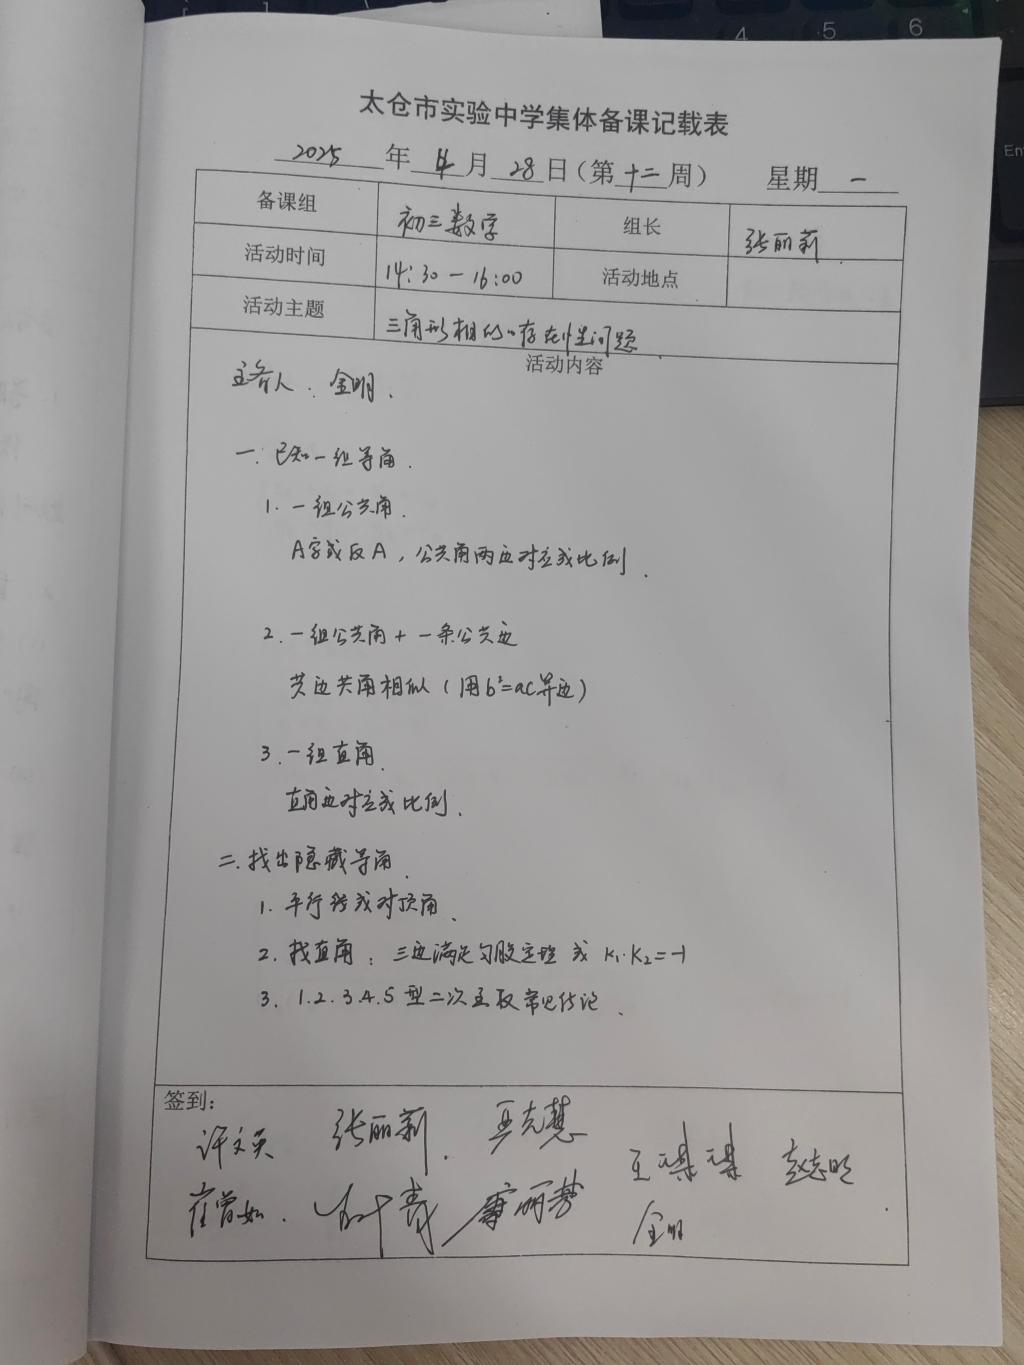 太仓市实验中学集体备课记载表
2025 年 4 月 28 日（第 十二 周） 星期 一
备课组 初三数学 组长 张丽莉
活动时间 14:30－16:00 活动地点
活动主题 三角形相似的存在性问题
活动内容
主备人：金明.
一. 已知一组等角.
1. 一组公共角.
A字或反A，公共角两边对应成比例.
2. 一组公共角 + 一条公共边
共边共角相似（用b²=ac算边）
3. 一组直角.
直角边对应成比例.
二. 找出隐藏等角.
1. 平行线或对顶角.
2. 找直角：三边满足勾股定理 或 K₁·K₂=-1
3. 1.2.3.4.5 型二次主取常见结论.
签到：
许文英 张丽莉. 王琪琪 赵志明
崔曾如. 叶青 金明
4 5 6